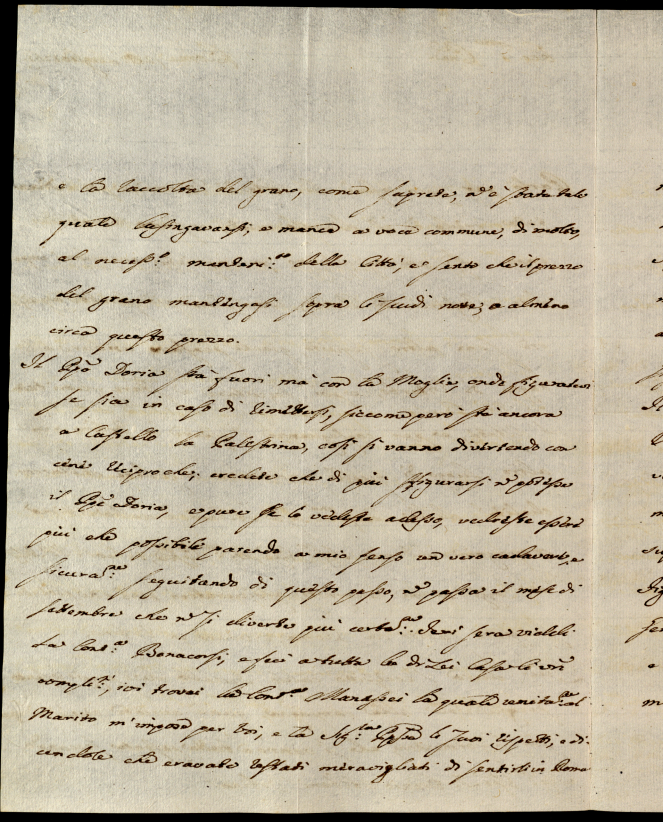 e la raccolta del grano, come saprete, nº è stata tale
quale lusingavansi, e manca a voce commune, di molto,
al necessº. manteni:to della Città, e sento che il prezzo
del grano mantengasi sopra li scudi nove; o almeno
circa questo prezzo.
Il Ppe Doria stà fuori mà con la Moglie, onde figuratevi
se sia in caso di rimettersi, siccome però stà ancora
a Castello la Palestrina, così si vanno divertendo con
cene reciproche; credete che di più sfigurarsi nº potesse
il Ppe Doria, eppure se lo vedeste adesso, vedreste essere
più che possibile parendo a mio senso un vero cadavere, e
sicura:te seguitando di questo passo, nº passa il mese di
settembre che nº si diverte più certa:te. Jeri sera viddi
La Cont:a Bonacorsi, e feci a tutta la di Lei Casa li vri
compli:ti, ivi trovai la Cont:a Manassei la quale unita:te al
Marito m'impose per voi, e la li suoi rispetti, e di-
cendole che eravate restati meravigliati di sentirli in Roma